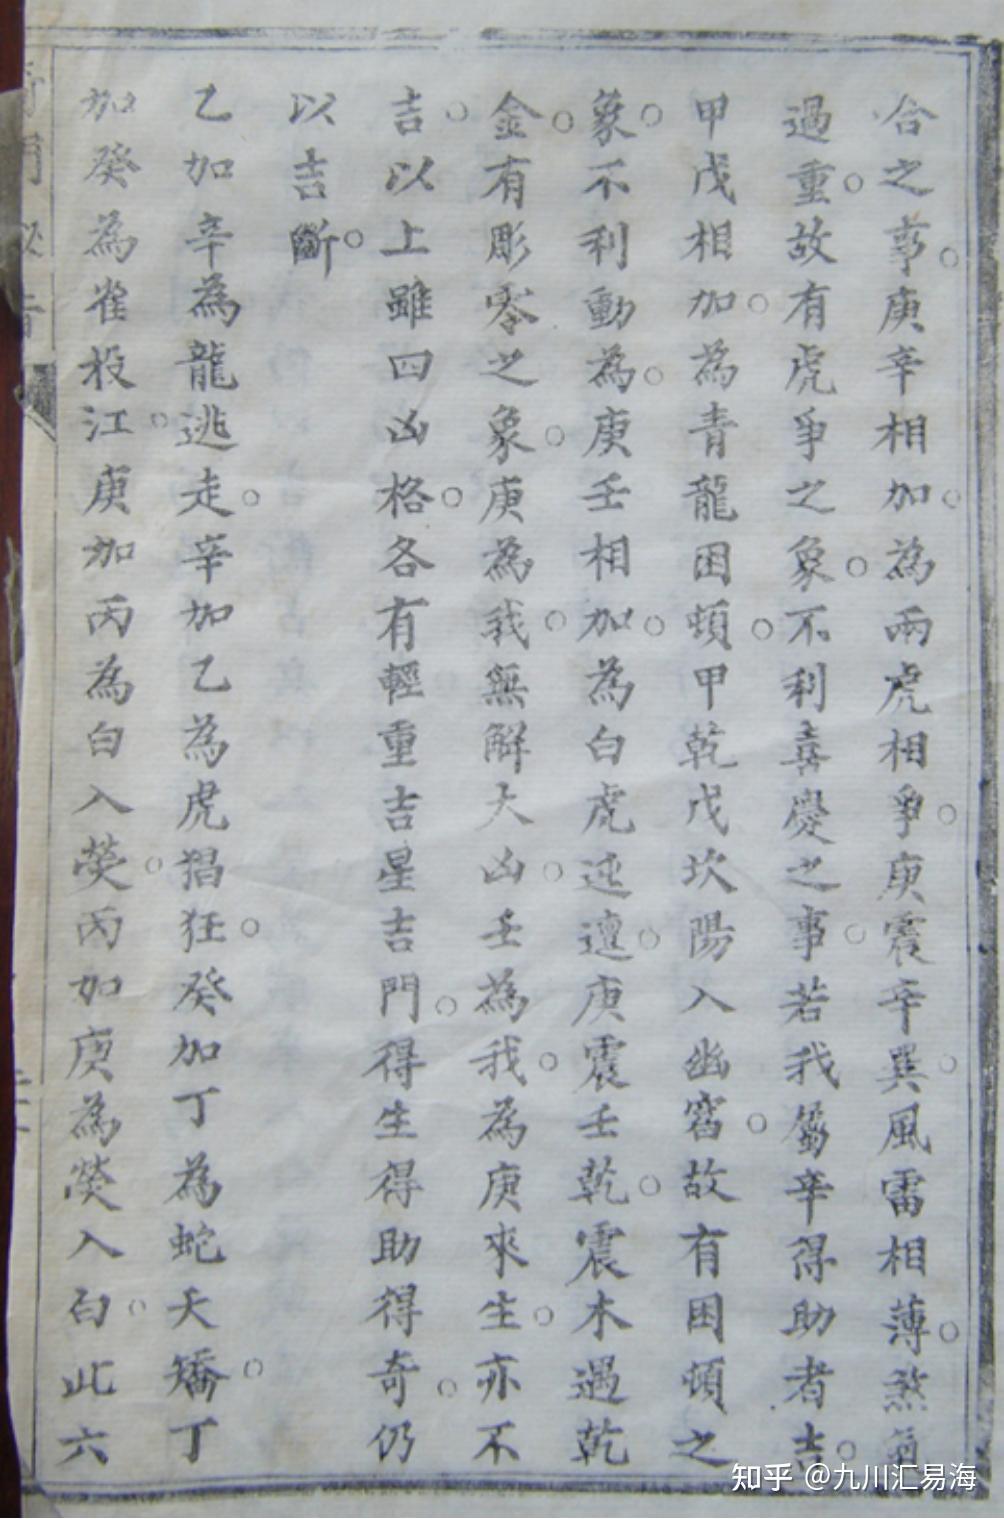 合之事。庚辛相加。為兩虎相爭。庚震辛巽。風雷相薄。煞氣
過重。故有虎爭之象。不利喜慶之事。若我屬辛得助者吉。
甲戊相加。為青龍困頓。甲乾戊坎陽入幽窞。故有困頓之
象。不利動為。庚壬相加。為白虎迍邅。庚震壬乾。震木遇乾
金。有彫零之象。庚為我。無解大凶。壬為我。為庚來生。亦不
吉。以上雖四凶格。各有輕重吉星吉門。得生得助得奇。仍
以吉斷。
乙加辛為龍逃走。辛加乙為虎猖狂。癸加丁為蛇夭矯。丁
加癸為雀投江。庚加丙為白入熒。丙加庚為熒入白。此六
知乎 @九川汇易海